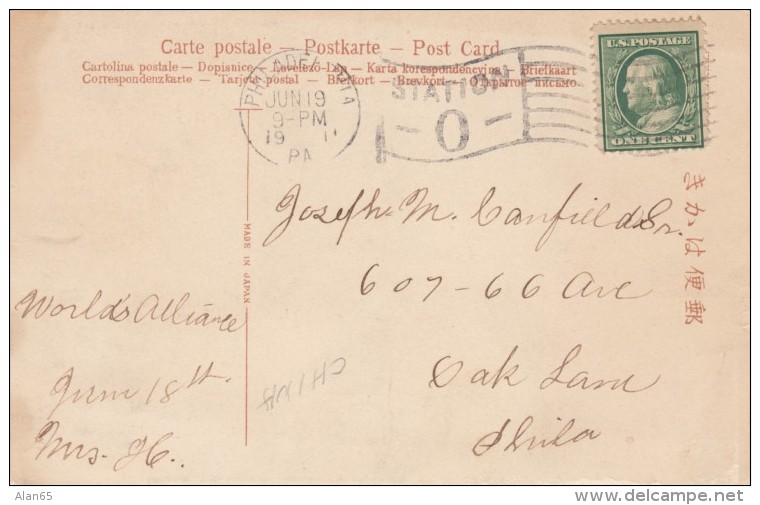 Carte postale — Postkarte — Post Card
Cartolina postale — Dopisnice — Levelezo-Lap — Karta korespondencyjna — Briefkaart
Correspondenzkarte — Tarjeta postal — Brefkort — Brevkort — Открытое письмо
PHILADELPHIA
JUN 19
9-PM
19 11
PA
STATION
-O-
U.S. POSTAGE
ONE CENT
きかは便郵
MADE IN JAPAN
Joseph M. Canfield Sr.
607-66 Ave
Oak Lane
Phila
World's Alliance
June 18th.
Mrs. H.
CHINA
Alan65
delcampe.net